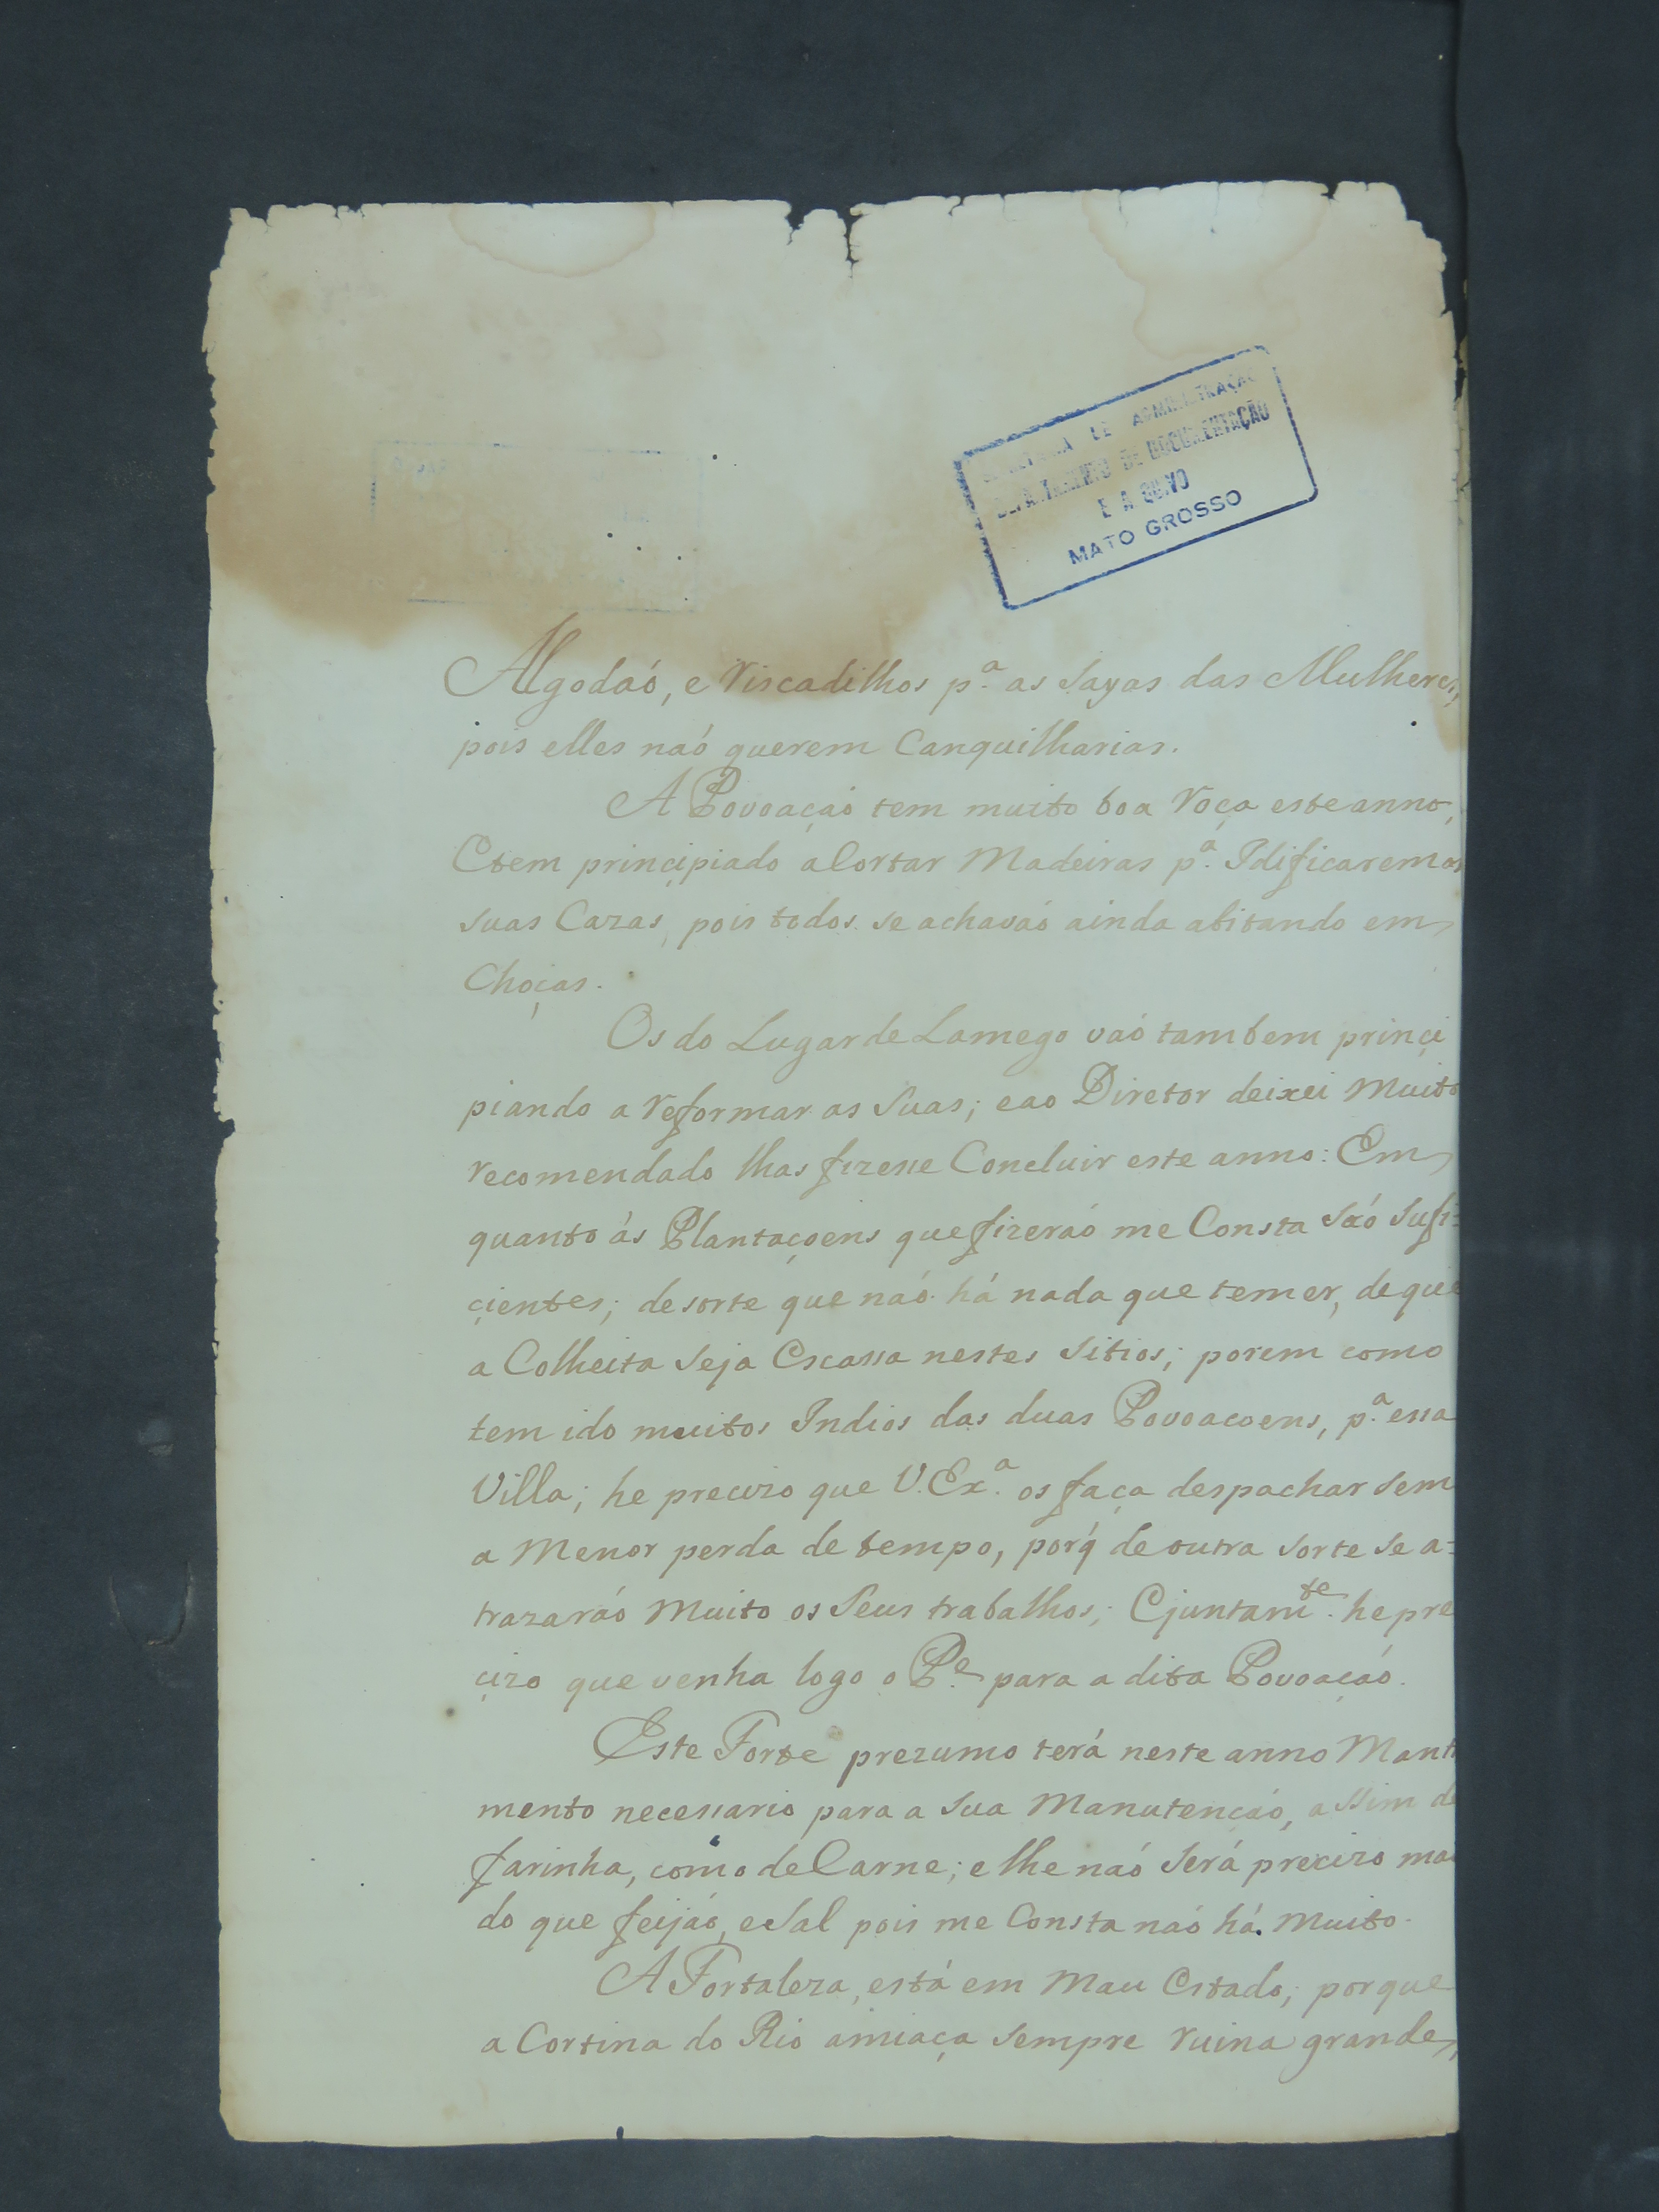 SECRETARIA DE ADMINISTRAÇÃO
DEPARTAMENTO DE DOCUMENTAÇÃO
E ARQUIVO
MATO GROSSO
Algodaó, e Riscadilhos p.ª as Sayas das Mulheres,
pois elles naó querem Canquilharias.
A Povoaçaó tem muito boa Roça este anno,
E tem principiado a Cortar Madeiras p.ª Idificarem as
suas Cazas, pois todos se achavaó ainda abitando em
Choças.
Os do Lugar de Lamego vaó tambem princi
piando a reformar as Suas; e ao Diretor deixei Muito
recomendado lhas fizesse Concluir este anno: Em
quanto ás Plantaçoens que fizeraó me Consta Saó Sufi=
cientes; de sorte que naó há nada que temer, de que
a Colheita Seja Escassa nestes Sitios; porem como
tem ido muitos Indios das duas Povoacoens, p.ª essa
Villa; he precizo que V. Ex.ª os faça despachar Sem
a Menor perda de tempo, porq̃ de outra Sorte Se a=
trazaráó Muito os Seus trabalhos; E juntam.te he pre
cizo que venha logo o P.e para a dita Povoaçaó.
Este Forte prezumo terá neste anno Mant
mento necessario para a Sua Manutençaó, assim de
farinha, como de Carne; e lhe naó Será precizo ma
do que feijaó, e Sal pois me Consta naó há Muito.
A Fortaleza, está em Mau Estado; porque
a Cortina do Rio amiaça Sempre Ruina grande,